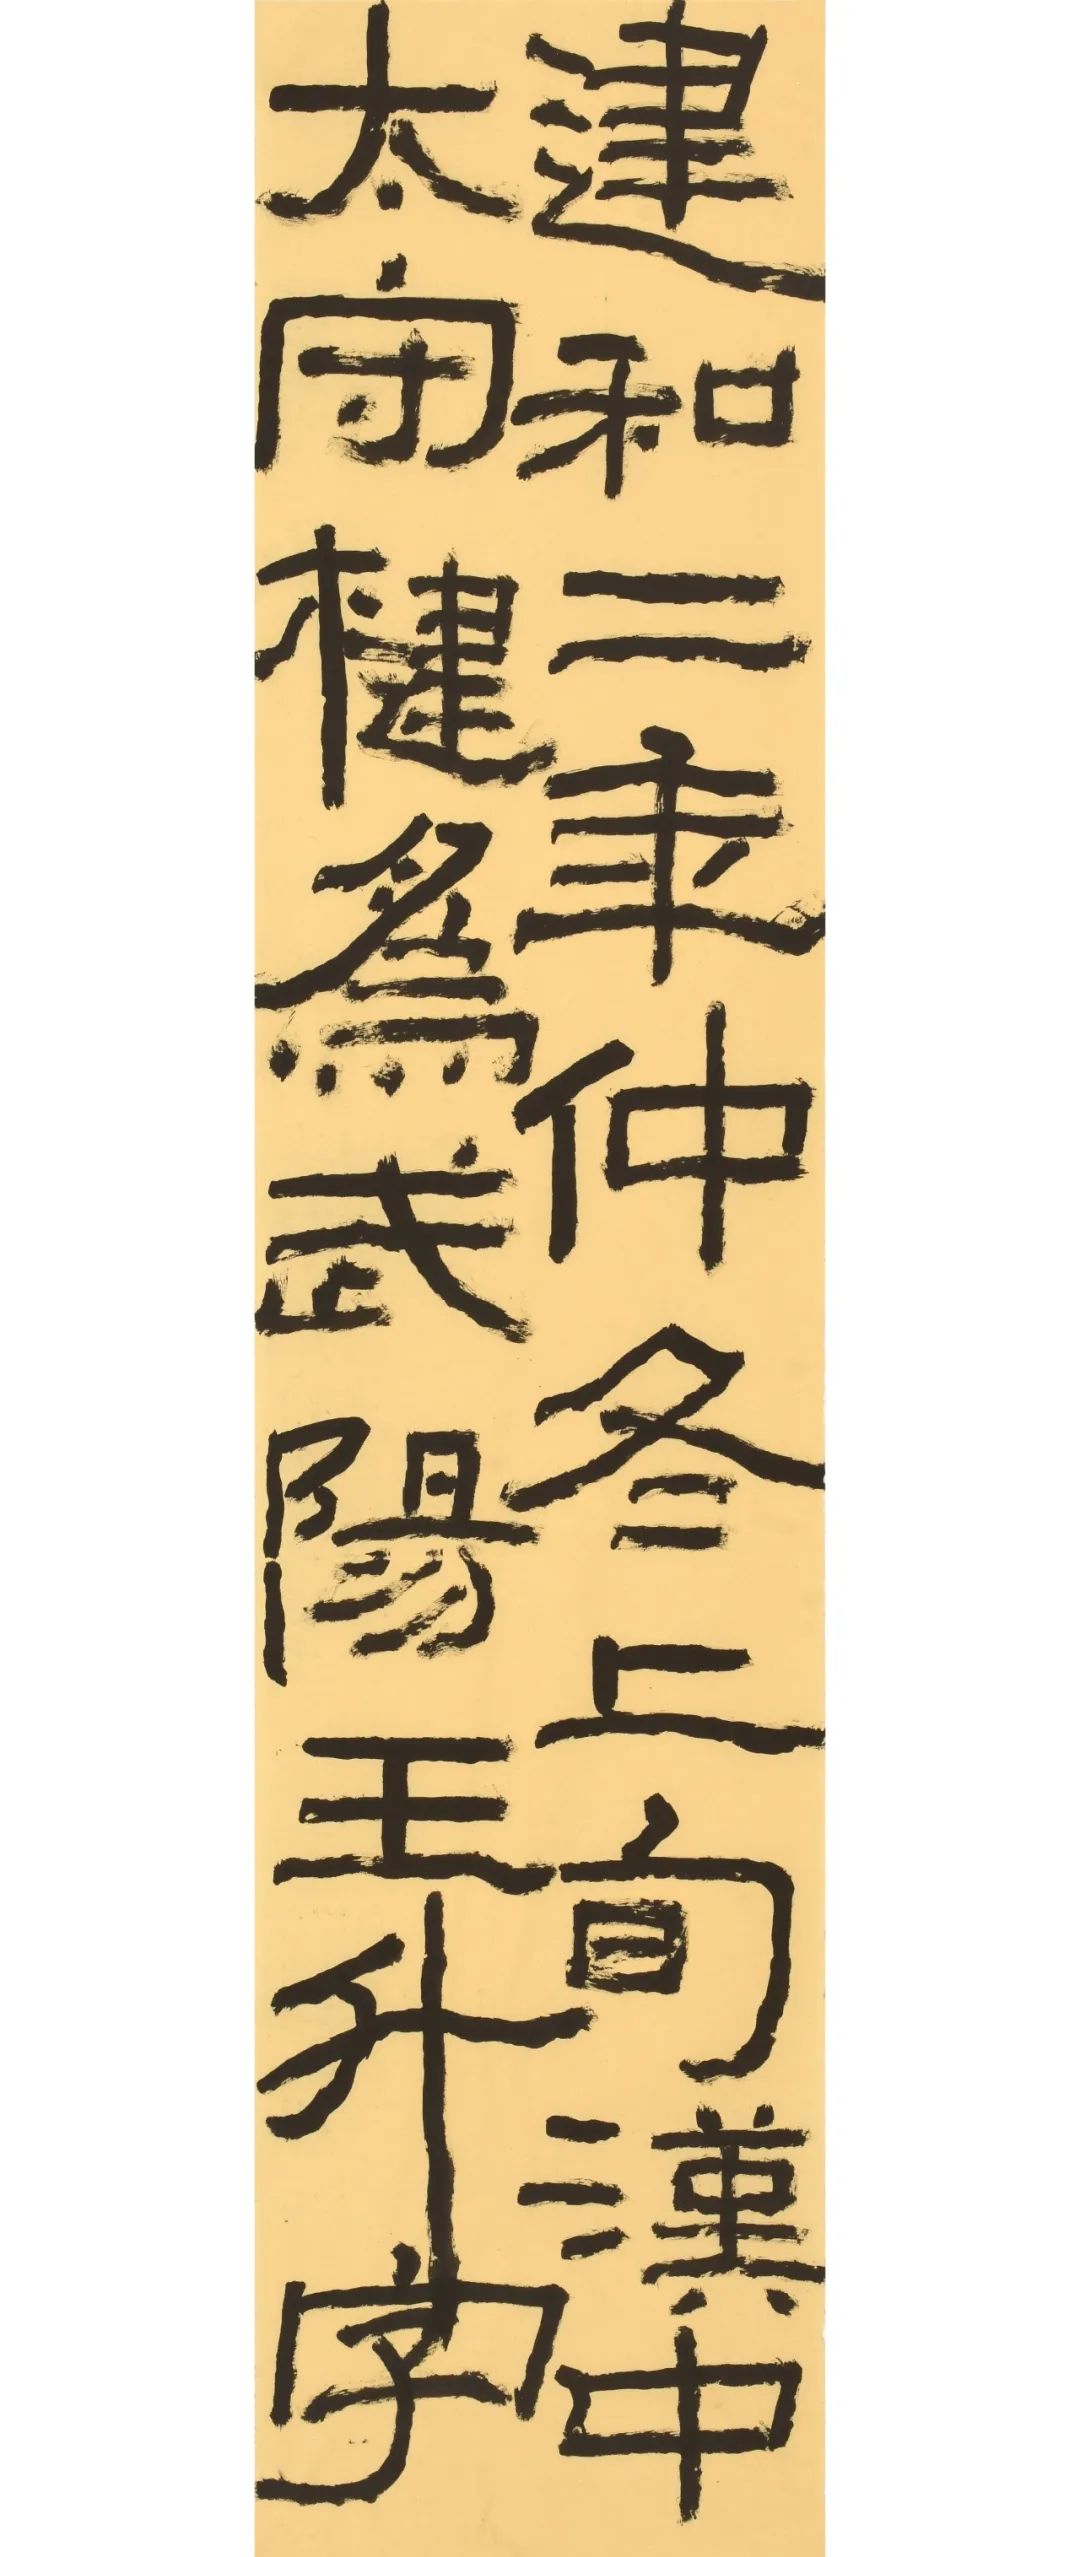 建和二年仲冬上旬漢中
太守楗為武陽王升字